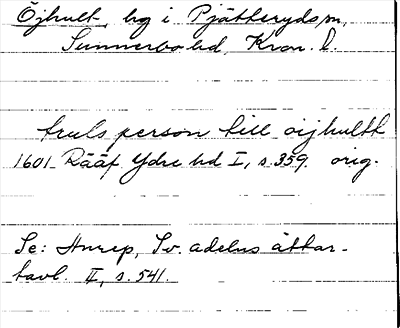 Öjhult, hg i Pjätteryds sn,
Sunnerbo hd, Kron. l.
truls person till öijhultt
1601 Rääf Ydre hd I, s. 359. orig.
Se: Hnrep, Sv. adelns ättar-
tavl. II, s. 541.